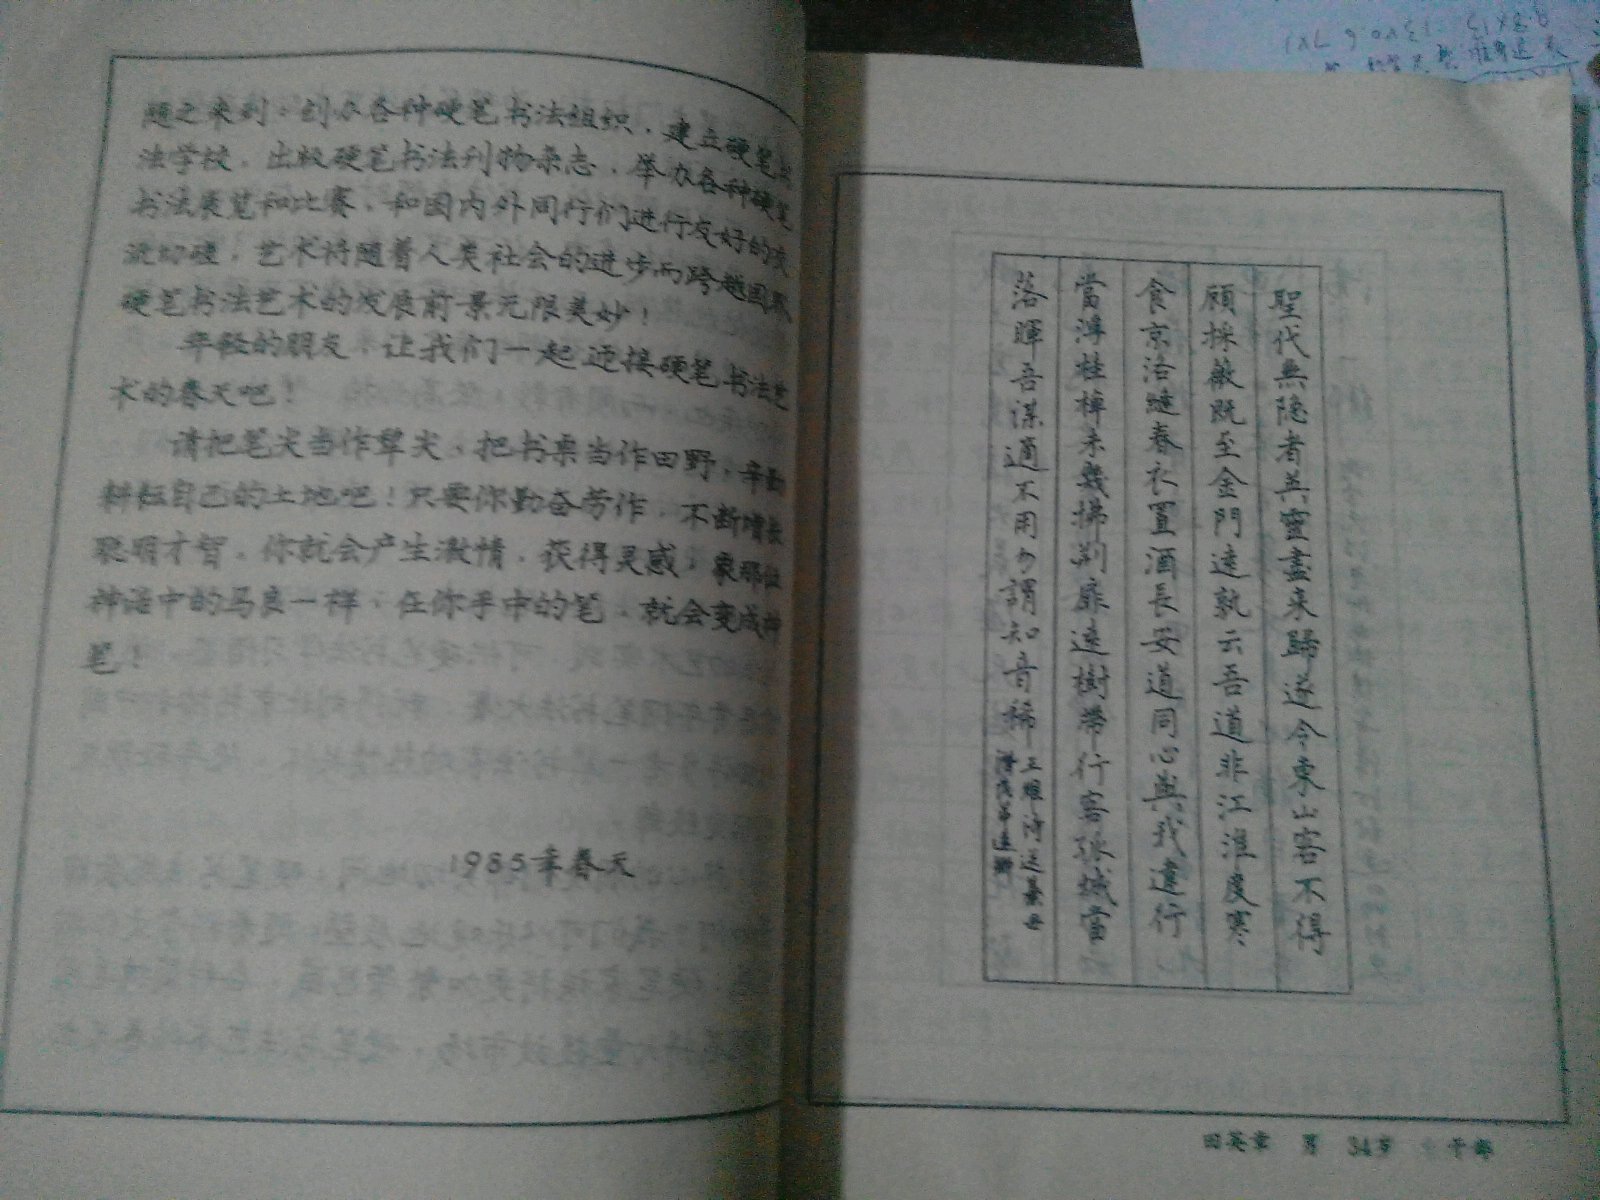 随之来到。创办各种硬笔书法组织，建立硬笔书
法学校，出版硬笔书法刊物杂志，举办各种硬笔
书法展览和比赛，和国内外同行们进行友好的交
流切磋，艺术将随着人类社会的进步而跨越国界
硬笔书法艺术的发展前景无限美妙！
年轻的朋友，让我们一起迎接硬笔书法艺
术的春天吧！
请把笔尖当作犁尖，把书桌当作田野，辛勤
耕耘自己的土地吧！只要你勤奋劳作，不断增长
聪明才智，你就会产生激情，获得灵感；象那位
神话中的马良一样，在你手中的笔，就会变成神
笔！
1985年春天
聖代無隐者英靈盡来歸遂令東山客不得
顾採薇既至金門遠孰云吾道非江淮度寒
食京洛縫春衣置酒長安道同心與我違行
當浮桂棹未幾拂荆扉遠樹帶行客孤城當
落暉吾谋適不用勿謂知音稀
王維诗送綦毋
潜落第還鄉
田英章 男 34岁 干部